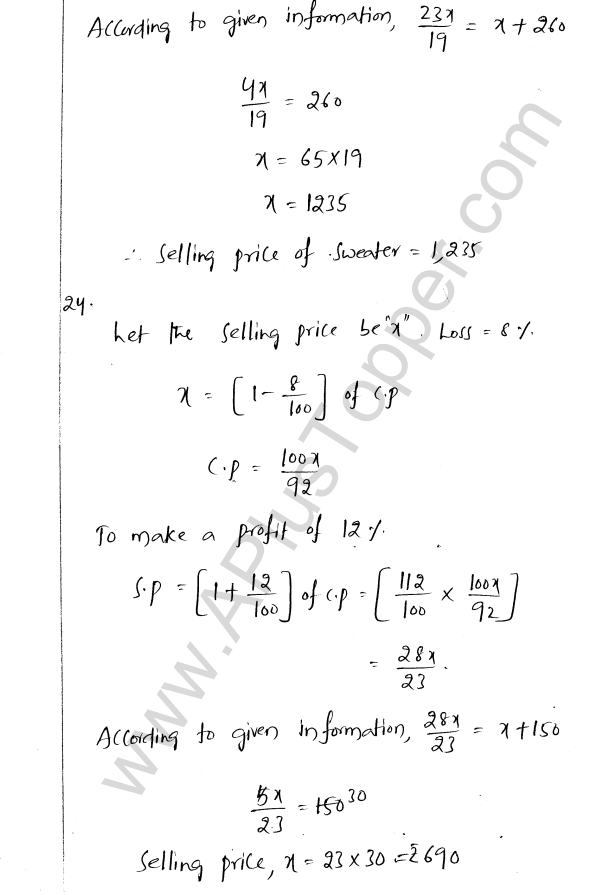 According to given information, 23x/19 = x + 260
4x/19 = 260
x = 65×19
x = 1235
∴ Selling price of sweater = 1,235
24.
Let the selling price be "x". Loss = 8%.
x = [1 - 8/100] of C.p
C.p = 100x/92
To make a profit of 12%.
S.p = [1 + 12/100] of C.p = [112/100 × 100x/92]
= 28x/23.
According to given information, 28x/23 = x + 150
5x/23 = 150 30
Selling price, x = 23 × 30 = ₹690
www.APlusTopper.com